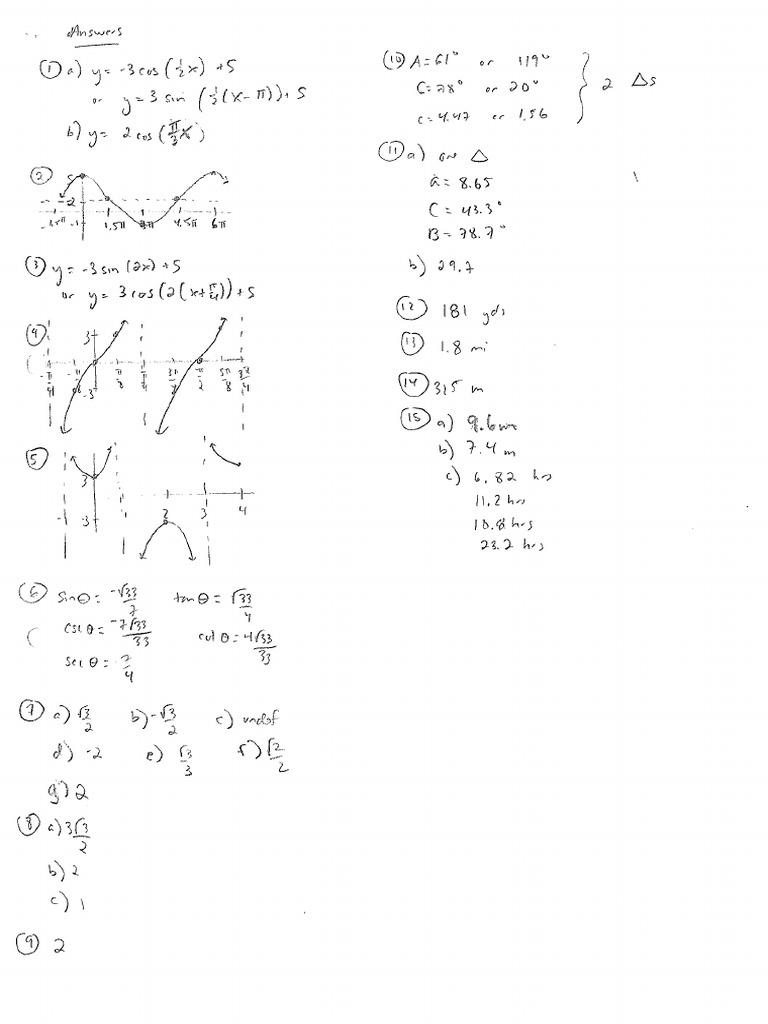 Answers
① a) y = -3cos(½x) + 5
or y = 3 sin(½(x-π)) + 5
b) y = 2cos(π/3 x)
②
5
2
-1
1.5π 3π 4.5π 6π
③ y = -3sin(2x) + 5
or y = 3cos(2(x+π/4)) + 5
④
3
-π/4 π/8 π/4 π/2 5π/8 3π/4
-3
⑤
3
-1 2 3 4
-3
⑥ sinθ = -√33/7 tanθ = √33/4
cscθ = -7√33/33 cotθ = 4√33/33
secθ = 7/4
⑦ a) √3/2 b) -√3/2 c) undef
d) -2 e) √3/3 f) √2/2
g) 2
⑧ a) 3√3/2
b) 2
c) 1
⑨ 2
⑩ A = 61° or 119°
C = 78° or 20°
c = 4.47 or 1.56
2 Δs
⑪ a) one Δ
a = 8.65
C = 43.3°
B = 78.7°
b) 29.7
⑫ 181 yds
⑬ 1.8 mi
⑭ 325 m
⑮ a) 9.6m
b) 7.4 m
c) 6.82 hrs
11.2 hrs
18.8 hrs
23.2 hrs